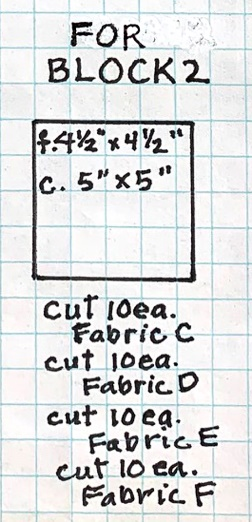 FOR
BLOCK 2
f. 4½" x 4½"
c. 5" x 5"
cut 10 ea.
Fabric C
cut 10 ea.
Fabric D
cut 10 ea.
Fabric E
cut 10 ea.
Fabric F